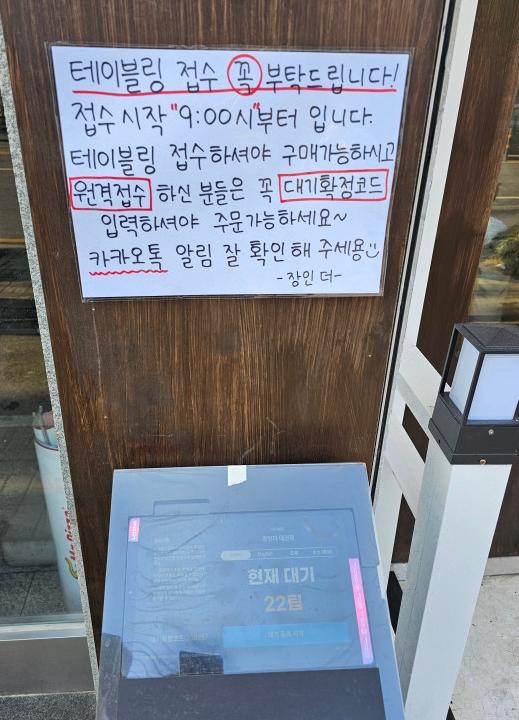 테이블링 접수 꼭 부탁드립니다!
접수 시작 "9:00시"부터 입니다.
테이블링 접수하셔야 구매가능하시고
원격접수 하신 분들은 꼭 대기확정코드
입력하셔야 주문가능하세요~
카카오톡 알림 잘 확인해 주세용
-장인 더-
현재 대기
22팀